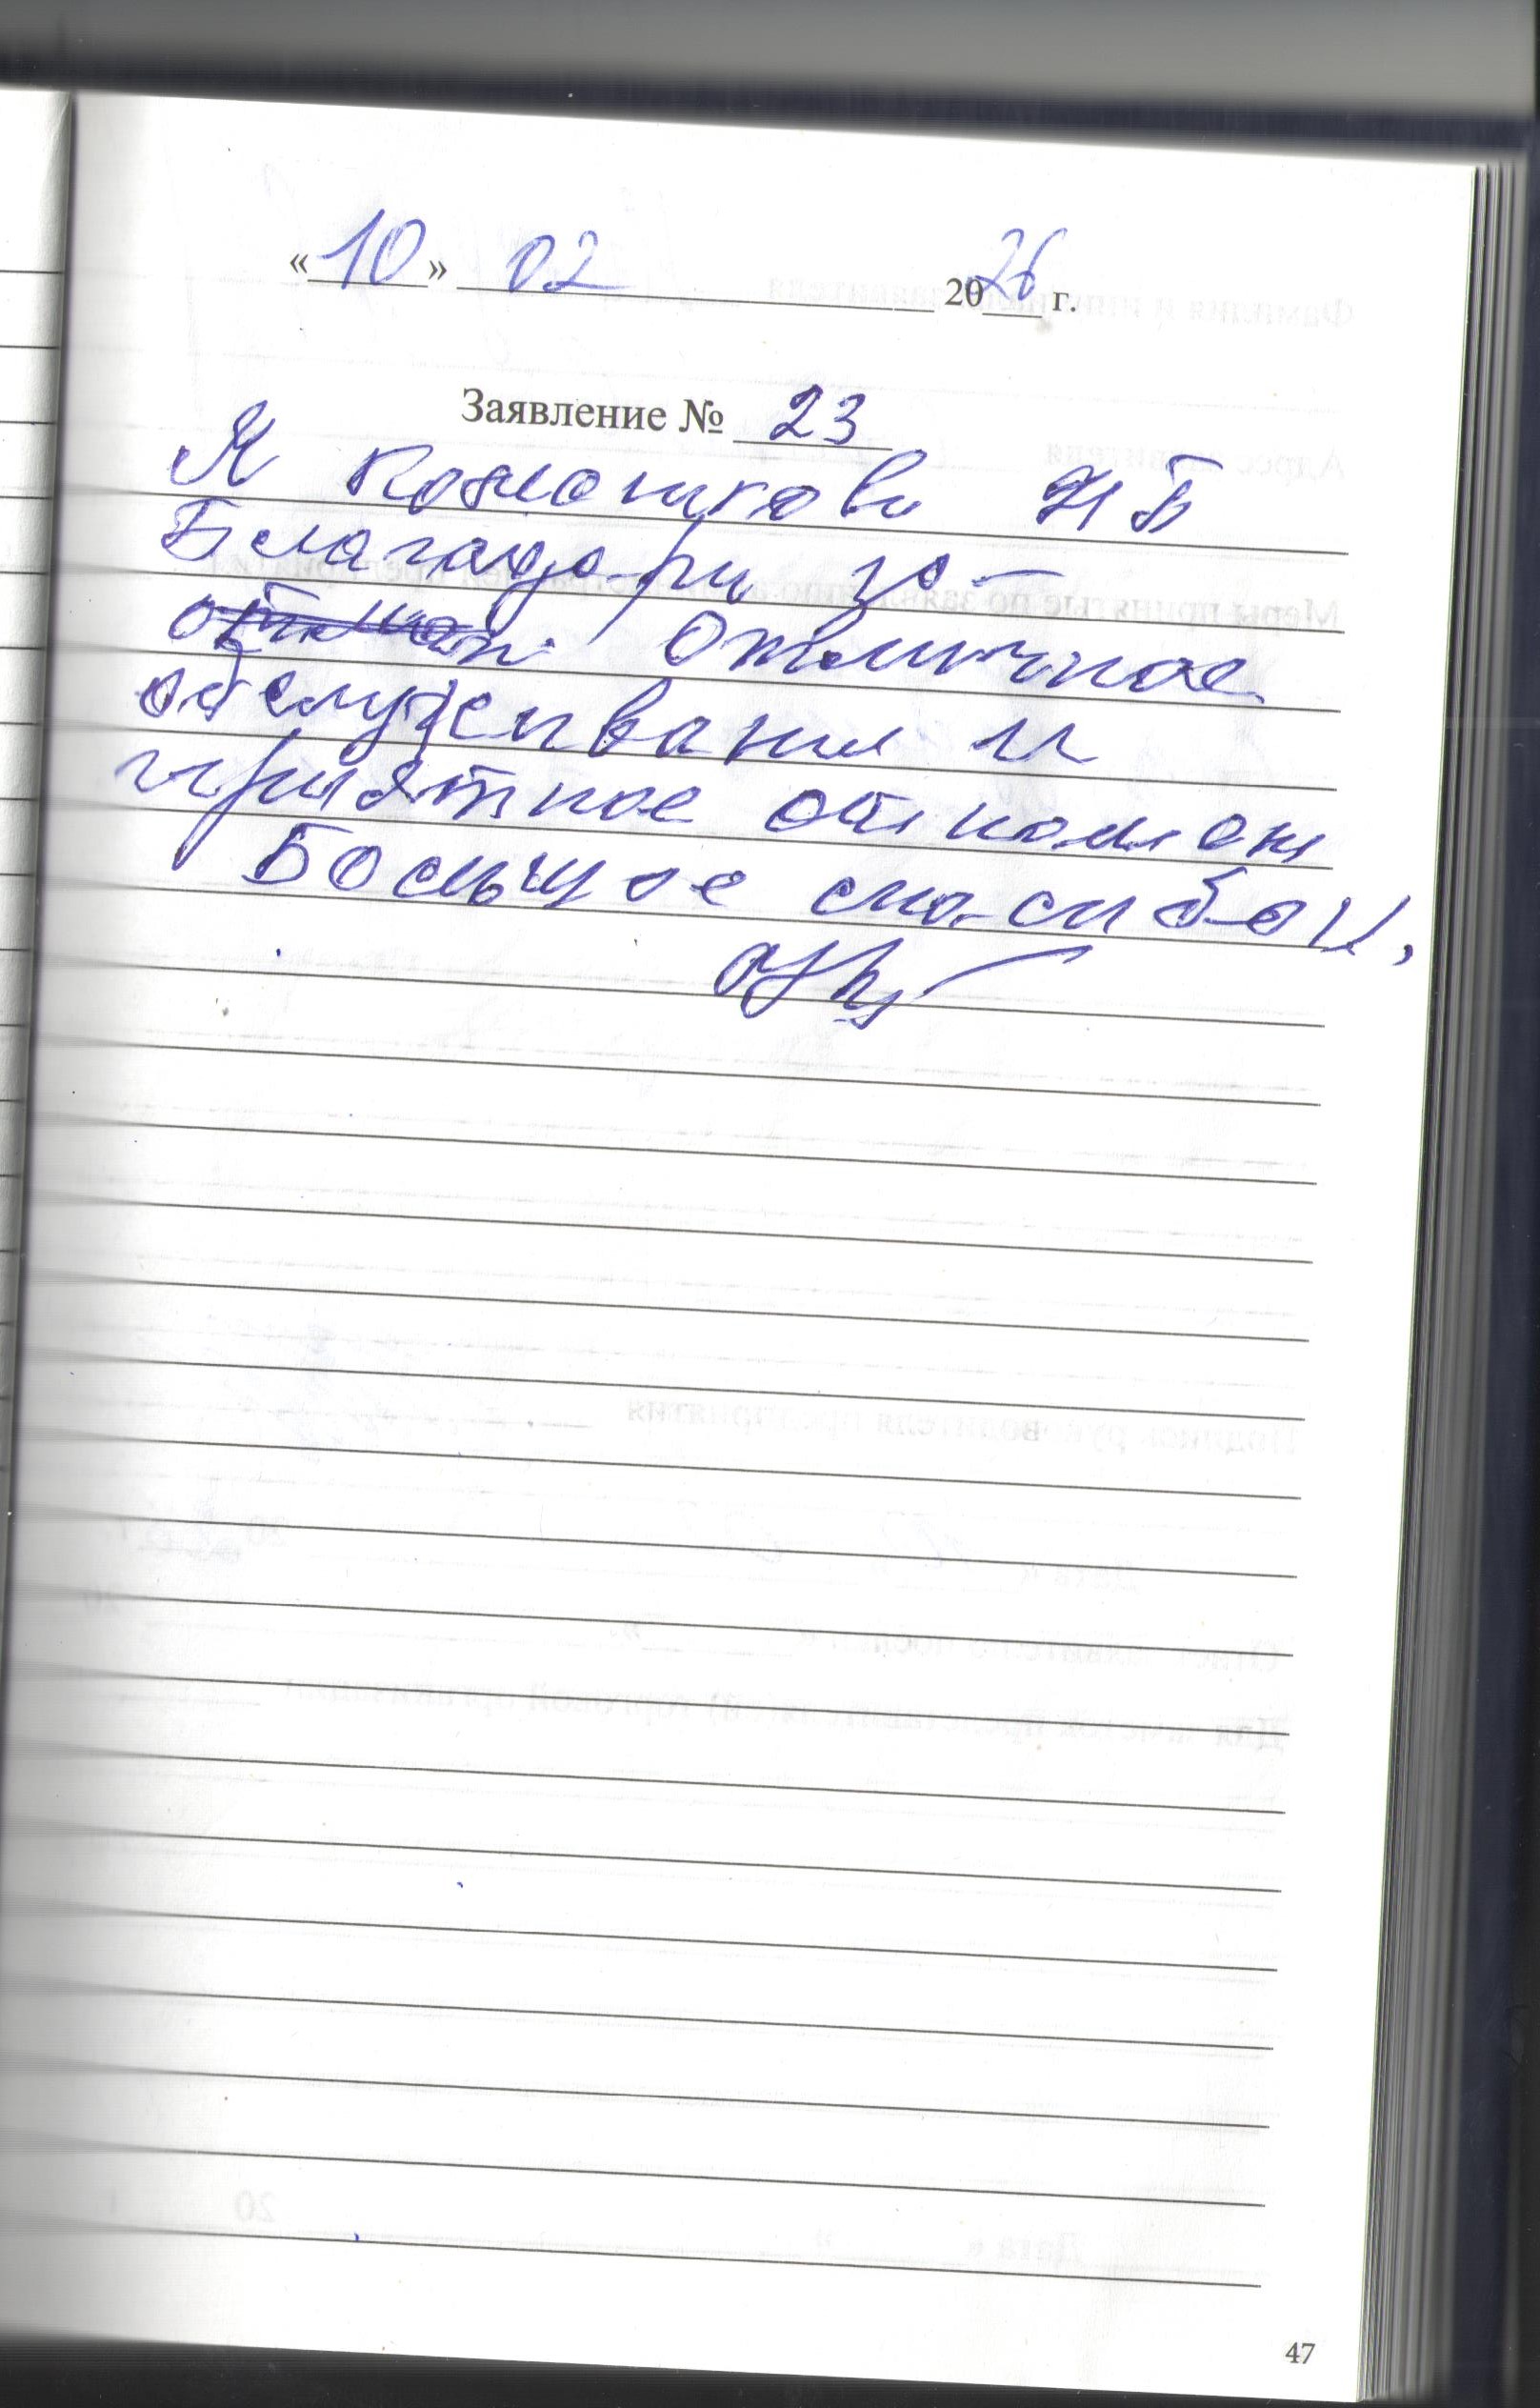 «10» 02 2026 г.
Заявление № 23
Я НБ
Благадари за
Отличное
обслуживания и
приятное отношен
Большое спасибои,
47